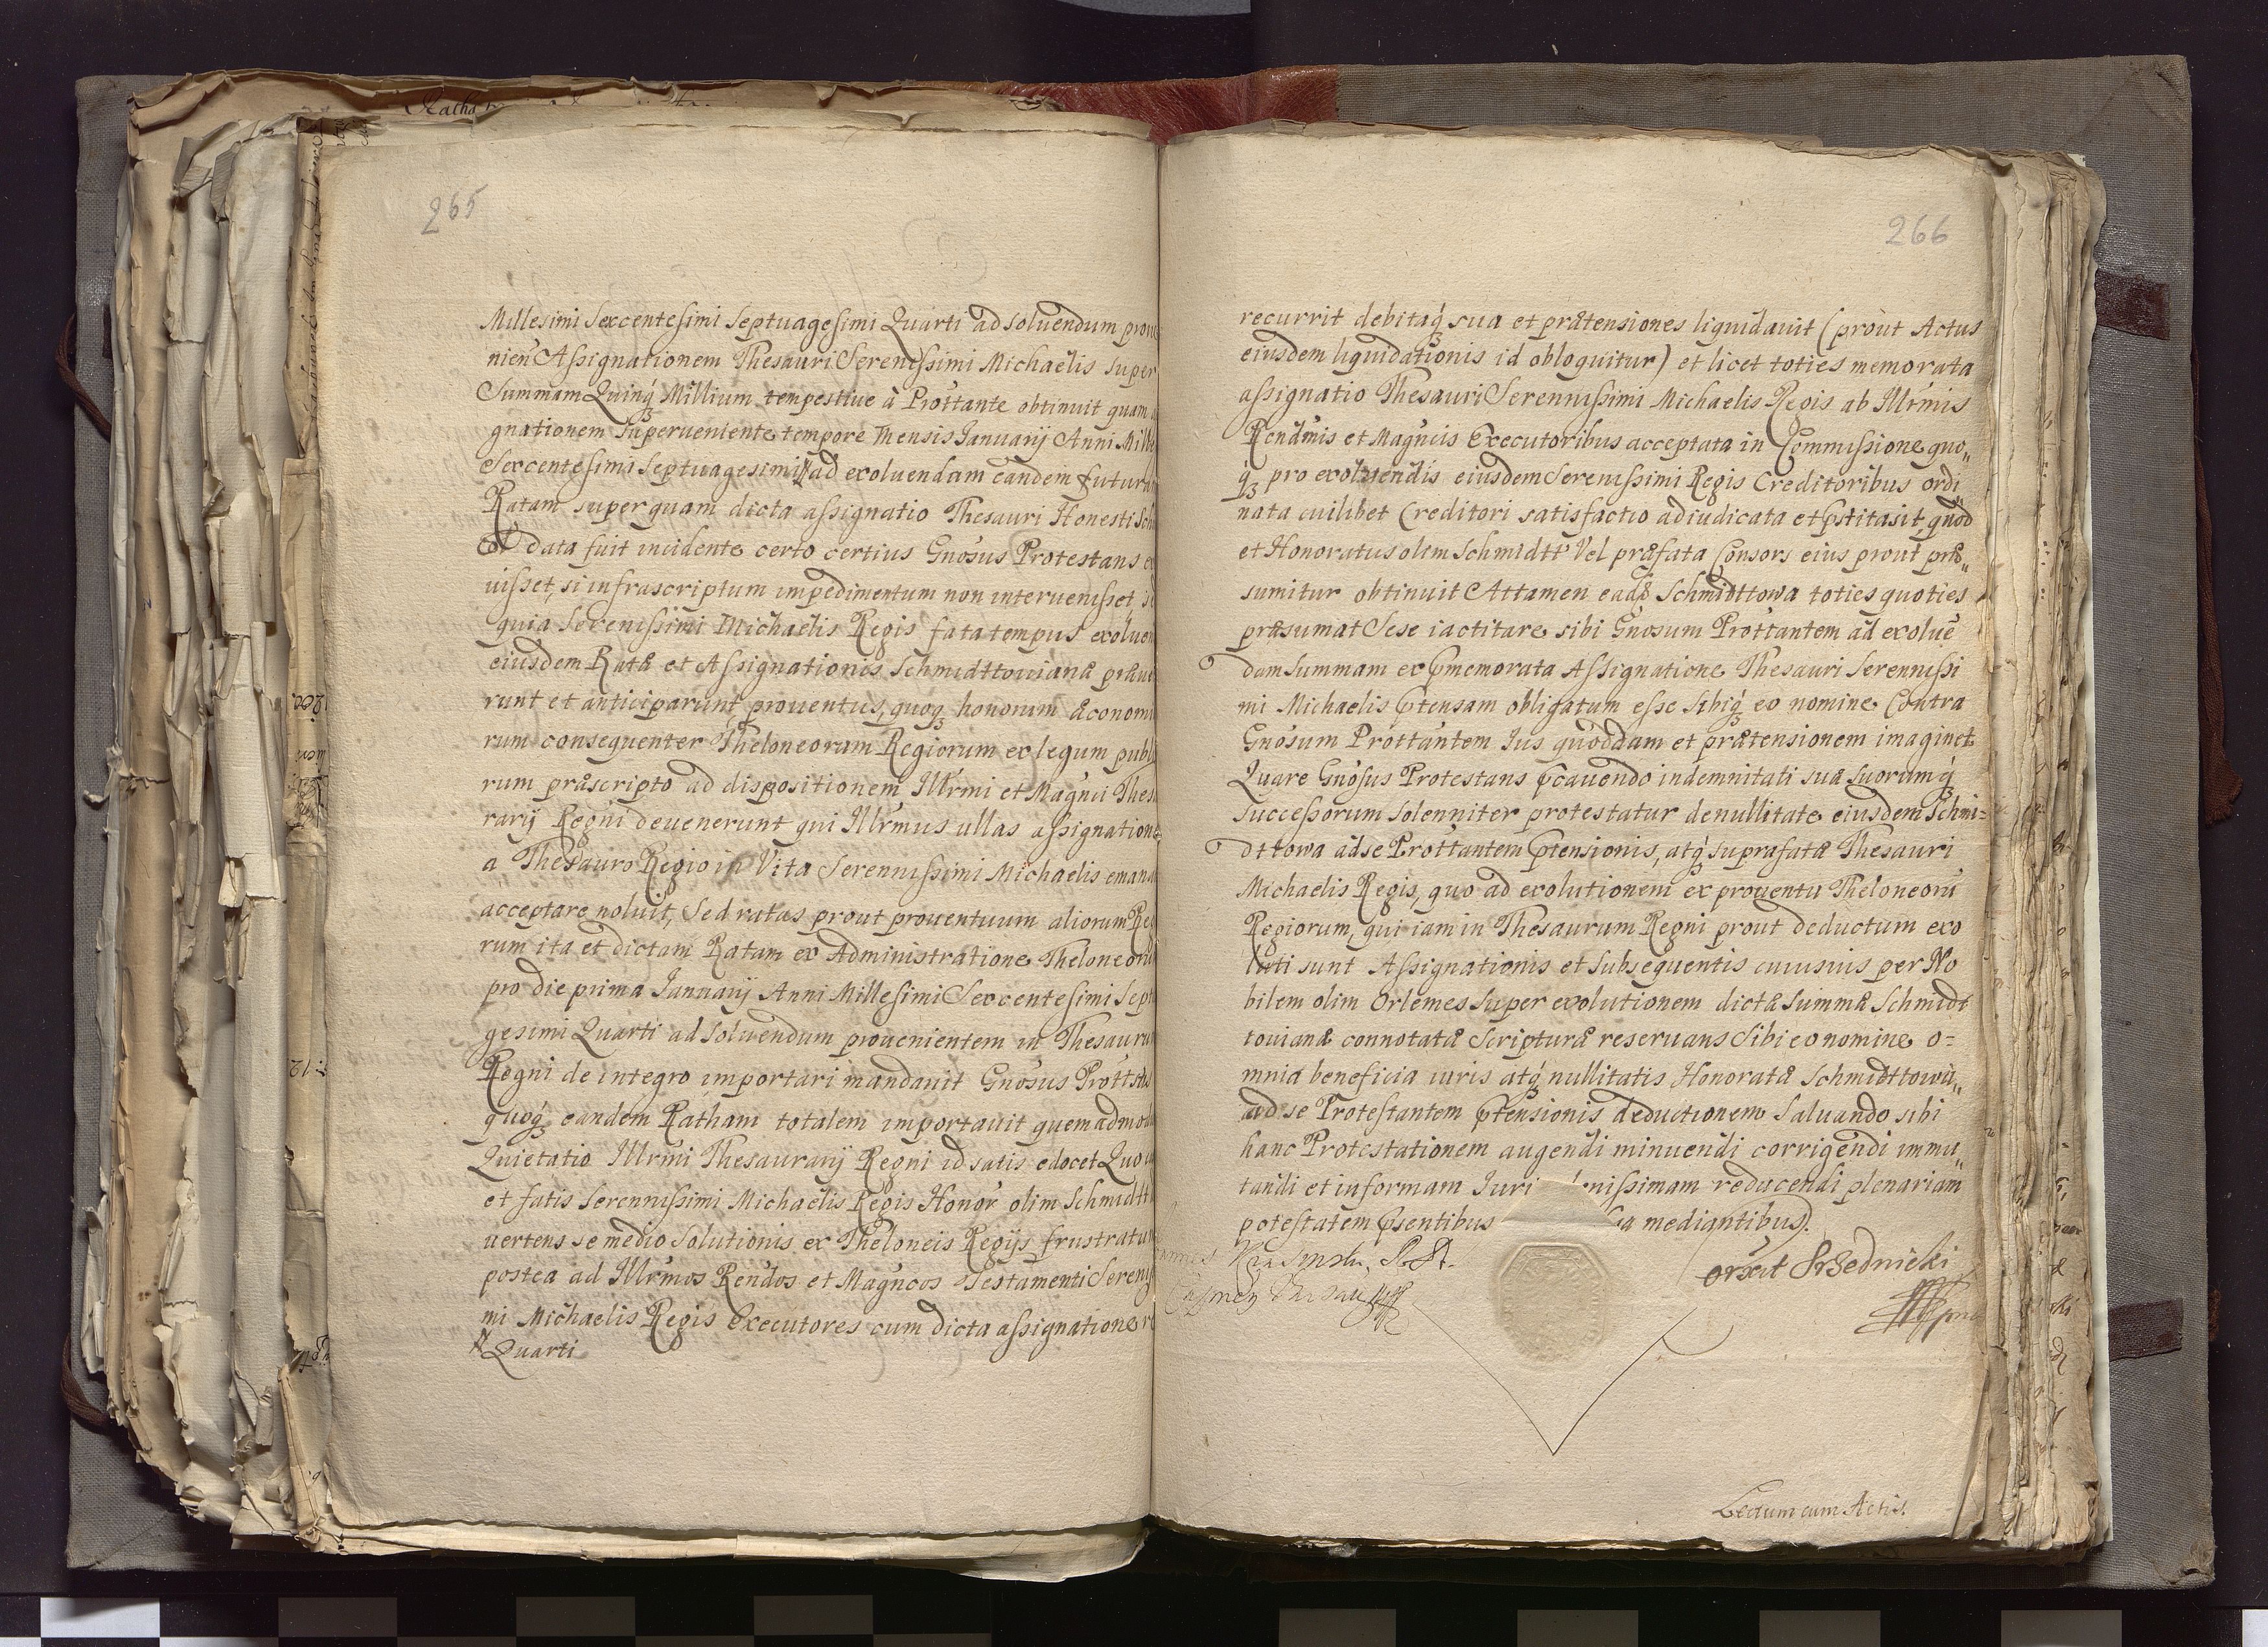 265
Millesimi Sexcentesimi Septuagesimi Quarti ad soluendum
nien Assignationem Thesauri Serenissimi Michaelis super
Summam Quinq₃ Millium tempestiue à Prottante obtinuit quam
gnationem superueniente tempore Mensis Januarij Anni
Sexcentesimi Septuagesimi ad exoluendam eandem futuram
Ratam super quam dicta assignatio Thesauri Honesti
data fuit incidente certo certius Gnosus Protestans
uisset, si infrascriptum impedimentum non interuenisset,
quia Serenissimi Michaelis Regis fata tempus
eiusdem Ratæ et Assignationis Schmidttowianæ
runt et anticiparunt, prouentus, quoq₃ bonorum
rum consequenter Theloneorum Regiorum ex legum
rum præscripto ad dispositionem Illrmi et Magnci
rarij Regni deuenerunt qui Illrmus ullas assignatione
a Thesauro Regio in Vita Serennissimi Michaelis
acceptare noluit, Sed ratas prout prouentuum aliorum
rum ita et dictam Ratam ex Administratione
pro die prima Januarij Anni Millesimi Sexcentesimi
gesimi Quarti ad soluendum prouenientem in
Regni de integro importari mandauit Gnosus
quoq₃ eandem Ratham totalem importauit
Quietatio Illrmi Thesaurarij Regni id satis edocet
et fatis Serennissimi Michaelis Regis Honor olim
uertens se medio Solutionis ex Theloneis Regijs
postea ad Illrmos Rendos et Magncos Testamenti
mi Michaelis Regis Executores cum dicta assignatione
Quarti
266
recurrit debitaq₃ sua et prætensiones liquidauit (prout Actus
eiusdem liquidationis id obloquitur) et licet toties memorata
assignatio Thesauri Serennissimi Michaelis Regis ab Illrmis
Rendmis et Magncis Executoribus acceptata in Commissione quo„
q₃ pro exoluendis eiusdem Serenissimi Regis Creditoribus ordi„
nata cuilibet Creditori satisfactio adiudicata et pstita sit quod
et Honoratus olim Schmidtt Vel præfata Consors eius prout præ„
sumitur obtinuit Attamen eadē Schmidttowa toties quoties
præsumat Sese iactitare sibi Gnosum Prottantem ad exolue
dam summam ex pmemorata Assignatione Thesauri Serennissi
mi Michaelis ptensam obligatum esse sibiq₃ eo nomine Contra
Gnosum Prottantem Ius quoddam et prætensionem imaginet
Quare Gnosus Protestans pcauendo indemnitati suæ suorumq₃
successorum solenniter protestatur de nullitate eiusdem Schmi=
dttowa ad se Prottantem ptensionis, atq₃ suprafatæ Thesauri
Michaelis Regis, quo ad exolutionem ex prouentu Theloneorū
Regiorum, qui iam in Thesaurum Regni prout deductum exo
luti sunt Assignationis et subsequentis cuiusuis per No
bilem olim Orlemes super exolutionem dictæ Summæ Schmidt
towianæ connotatæ Scripturæ reseruans Sibi eo nomine o=
mnia beneficia iuris atq₃ nullitatis Honoratæ Schmidttowā„
ad se Protestantem ptensionis deductionem Saluando sibi
hanc Protestationem augendi minuendi corrigendi immu„
tandi et in formam Iuri nissimam reducendi plenariam
potestatem psentibus mediantibus).
Srzednicki
Lectum cum Actis.